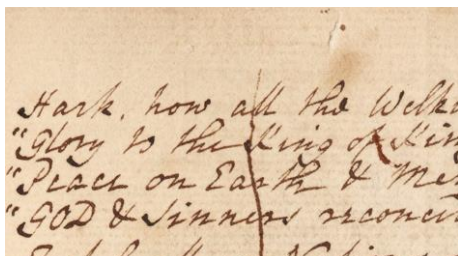 Hark, how all the Welk
"Glory to the King of Kin
"Peace on Earth & Me
"GOD & Sinners reconci